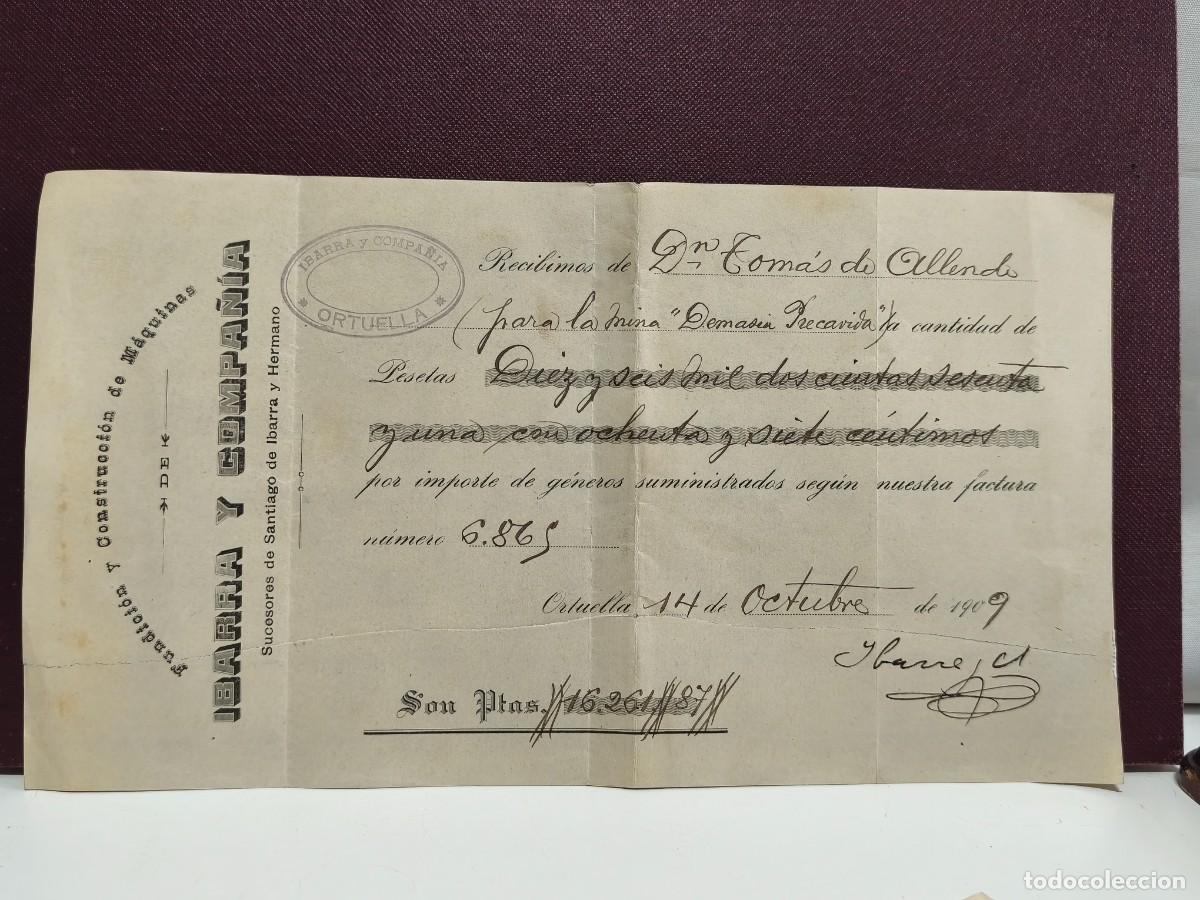 Fundición y Construcción de Máquinas
DE
IBARRA Y COMPAÑÍA
Sucesores de Santiago de Ibarra y Hermano
IBARRA Y COMPAÑIA
ORTUELLA
Recibimos de Dn Tomás de Allende
(para la mina "Demasia Precavida") la cantidad de
Pesetas Diez y seis mil dos cientas sesenta
y una, con ochenta y siete céntimos
por importe de géneros suministrados según nuestra factura
número 6.865
Ortuella 14 de Octubre de 1909
Ibarra y Cª
Son Ptas. 16.261 87
todocoleccion